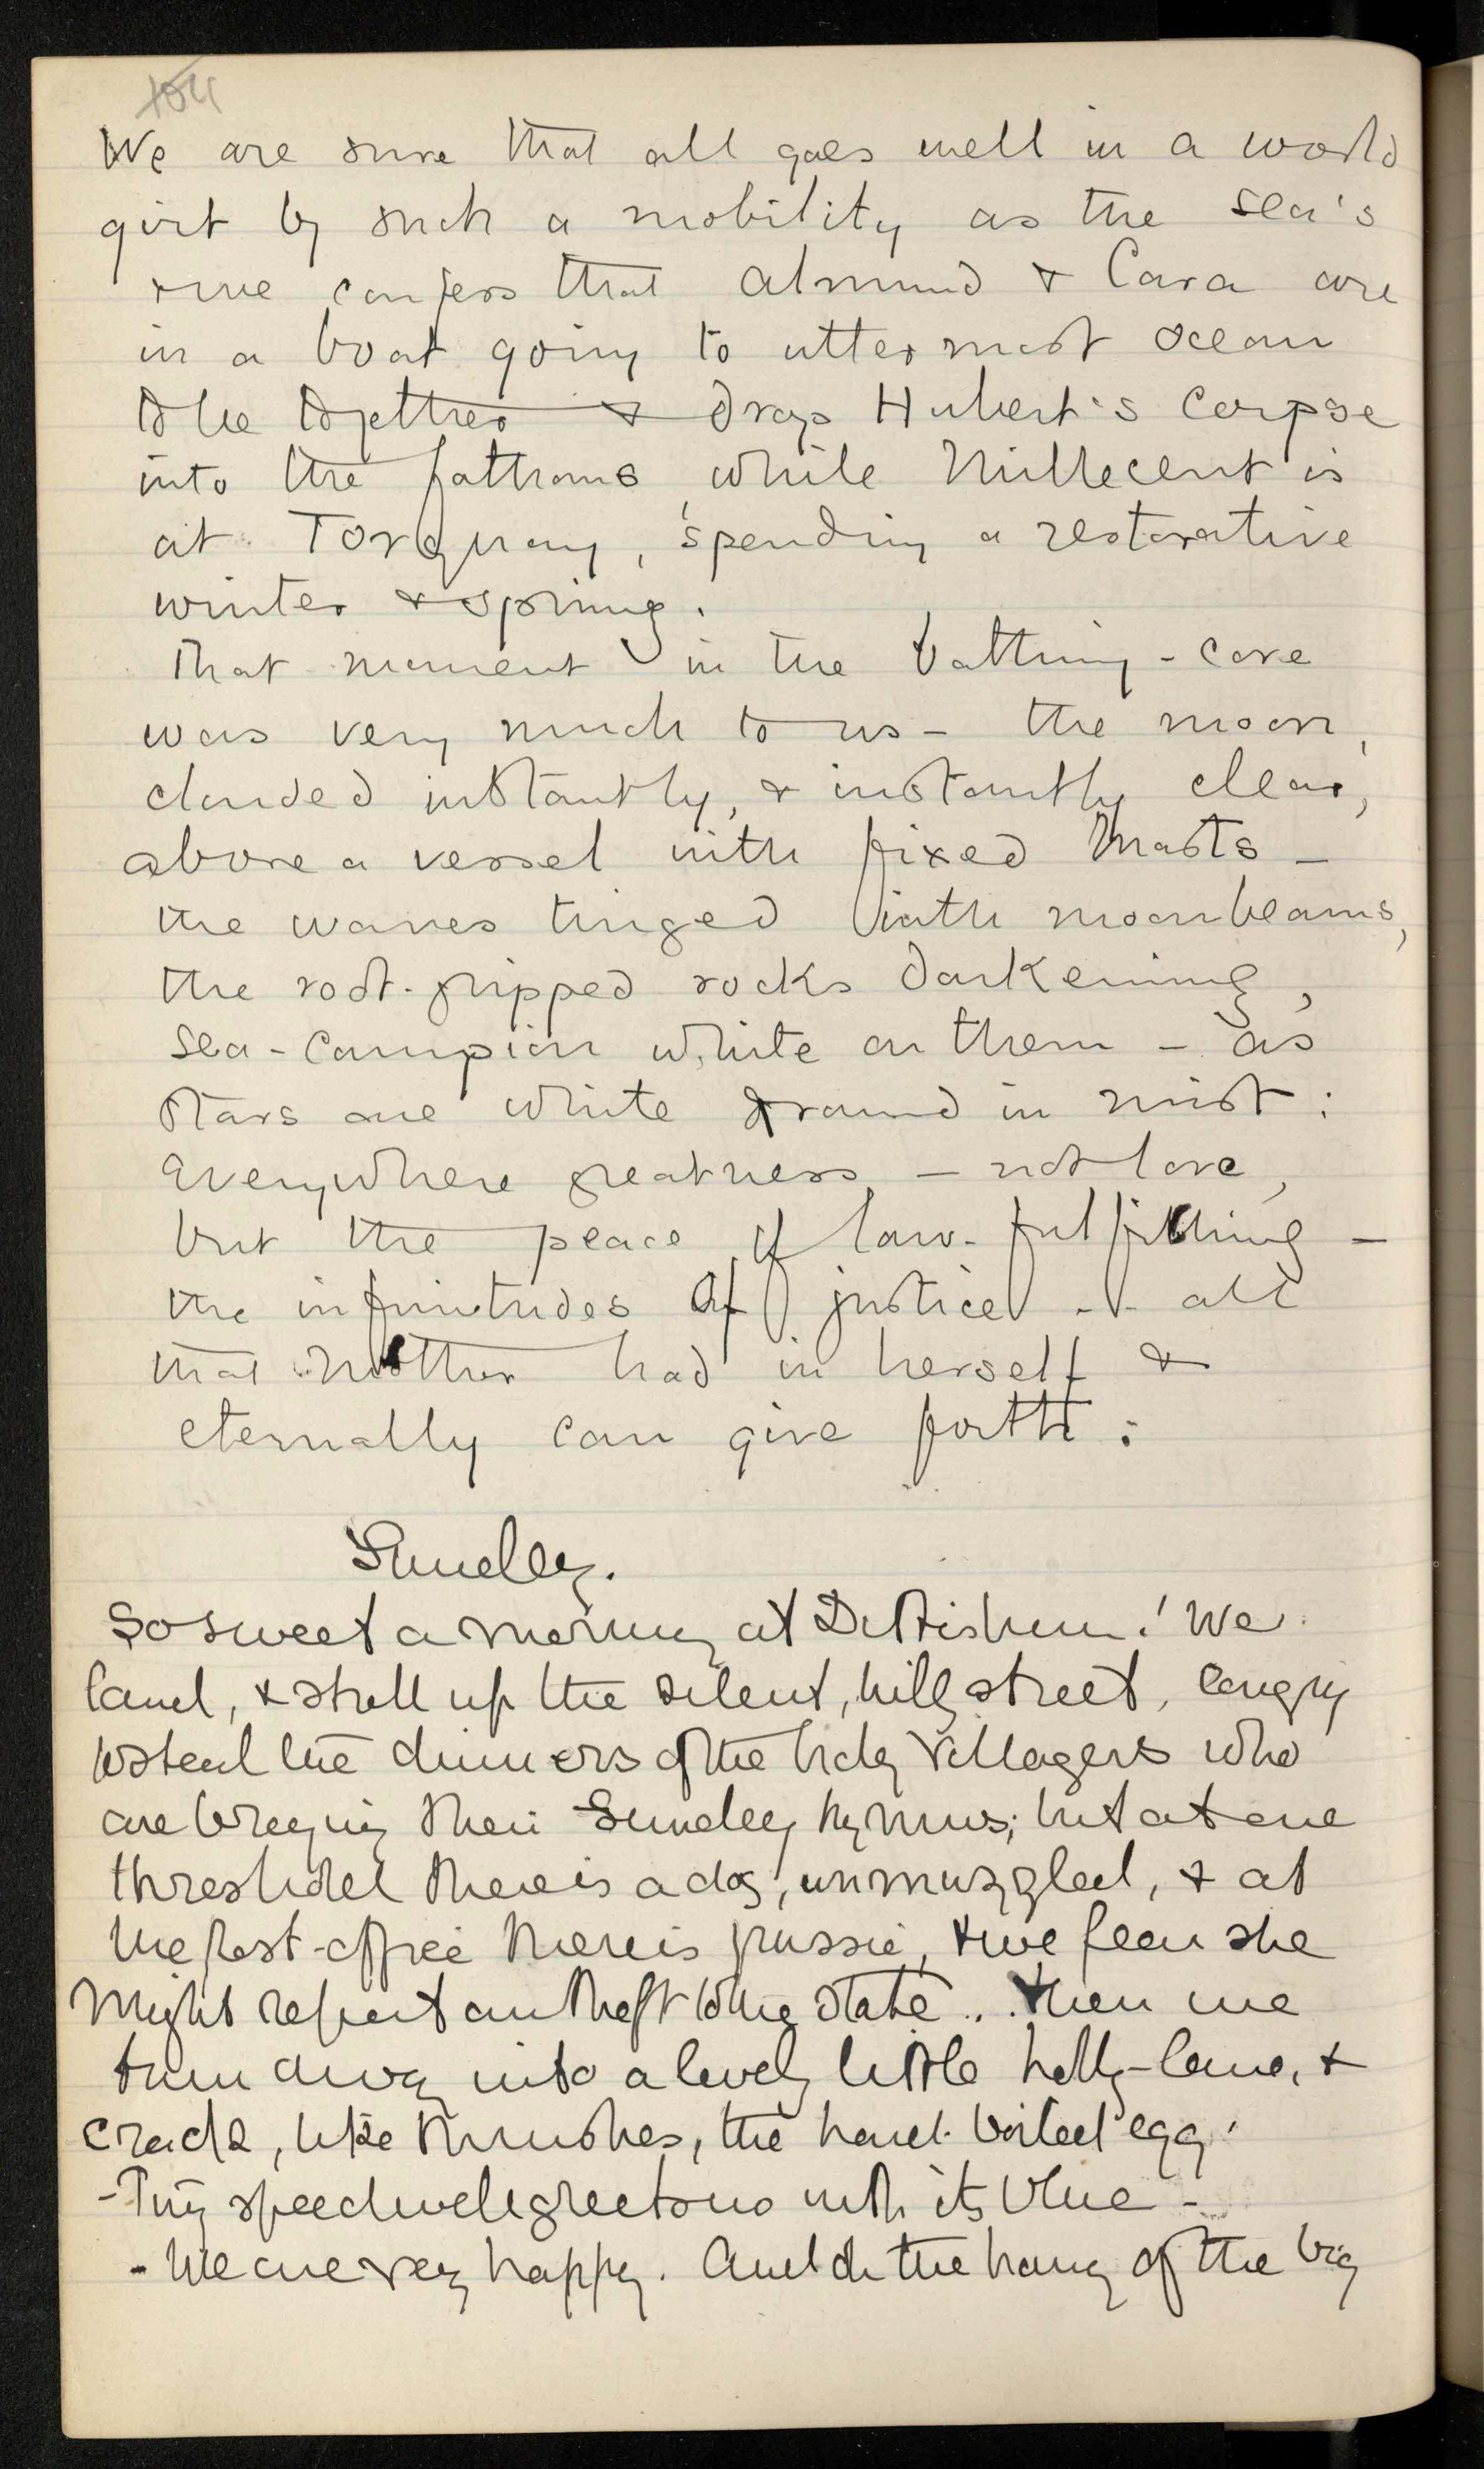 104
We are sure that all goes well in a world
girt by such a mobility as the sea's
& we confess that Almund & Cara are
in a boat going to uttermost ocean
to be together & drop Hubert's corpse
into the fathoms, while Millecent is
at Torquay, spending a restorative
winter & spring.
That moment in the bathing-cove
was very much to us – the moon,
clouded instantly, & instantly clear,
above a vessel with fixed masts –
the waves tinged with moonbeams,
the root-gripped rocks darkening,
sea-campion white on them – as
stars are white & round in mist:
Everywhere greatness – not love,
but the peace of law-fulfilling –
the infinitudes of justice – all
that Mother had in herself &
eternally can give forth:
Sunday.
So sweet a morning at Dittisham! We
land, & stroll up the silent, hilly street, longing
to steal the dinners of the tidy villagers who
are braying their Sunday hymns; but at one
threshold there is a dog, unmuzzled, & at
the post-office there is pussie, & we fear she
might report our theft to the State... Then we
turn away into a lovely little holly-lane, &
crack, like thrushes, the hard-boiled egg.
- Tiny speedwell greets us with its blue -
- We are very happy. And the of the big